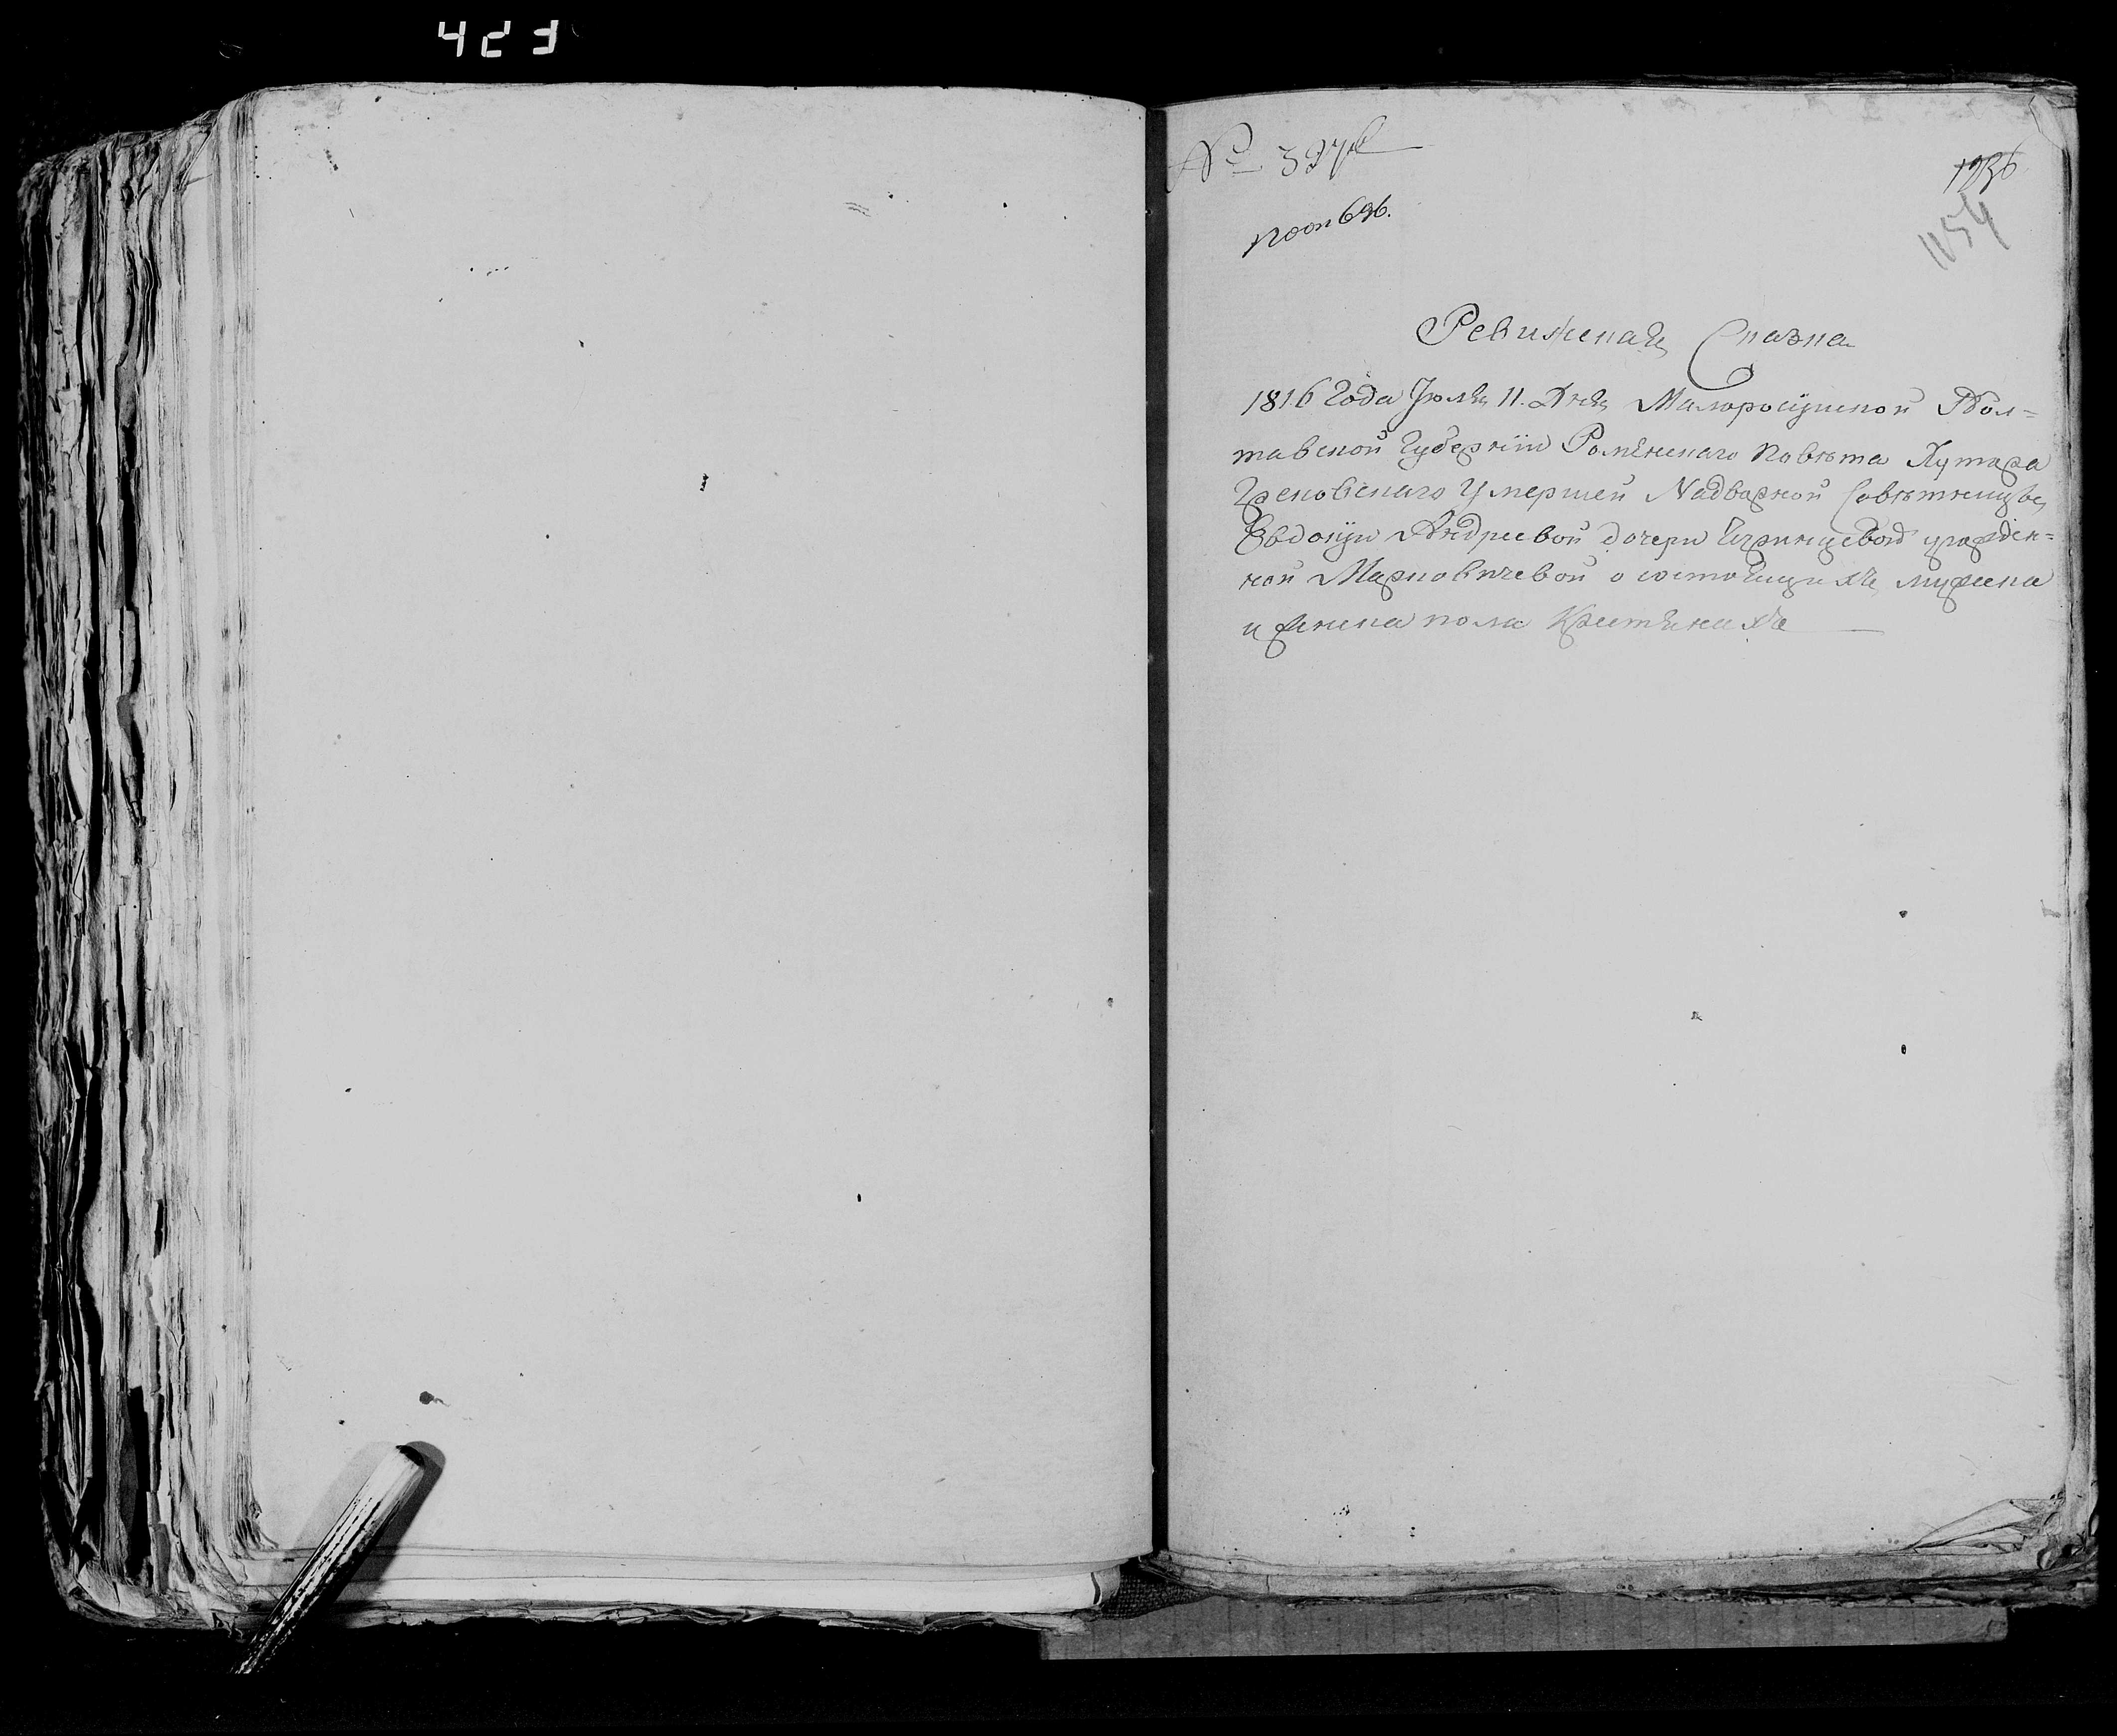 423
№ 397
1236
1154
поон 696.
Ревижская Сказка
1816 Года Июля 11. Дня Малоросийской Пол=
тавской Губернии Роменского Повѣта Хутора
Грековского Умершей Надворной Совѣтницы
Евдокии Андреевой дочери урожден=
ной Марковичевой о состоящихъ мужска
и женска пола Крестянахъ